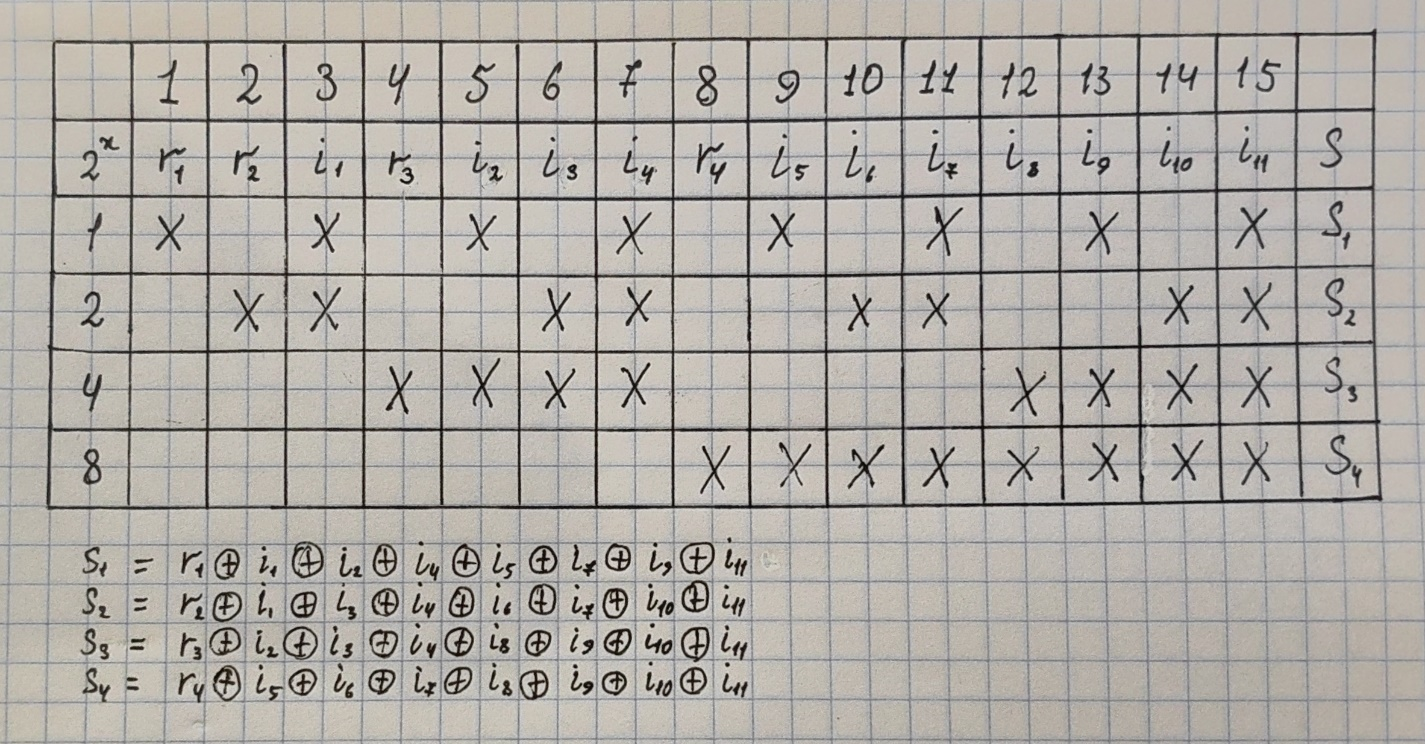 1 2 3 4 5 6 7 8 9 10 11 12 13 14 15
2ˣ r₁ r₂ i₁ r₃ i₂ i₃ i₄ r₄ i₅ i₆ i₇ i₈ i₉ i₁₀ i₁₁ S
1 X X X X X X X X S₁
2 X X X X X X X X S₂
4 X X X X X X X X S₃
8 X X X X X X X X S₄
S₁ = r₁ ⊕ i₁ ⊕ i₂ ⊕ i₄ ⊕ i₅ ⊕ i₇ ⊕ i₉ ⊕ i₁₁
S₂ = r₂ ⊕ i₁ ⊕ i₃ ⊕ i₄ ⊕ i₆ ⊕ i₇ ⊕ i₁₀ ⊕ i₁₁
S₃ = r₃ ⊕ i₂ ⊕ i₃ ⊕ i₄ ⊕ i₈ ⊕ i₉ ⊕ i₁₀ ⊕ i₁₁
S₄ = r₄ ⊕ i₅ ⊕ i₆ ⊕ i₇ ⊕ i₈ ⊕ i₉ ⊕ i₁₀ ⊕ i₁₁